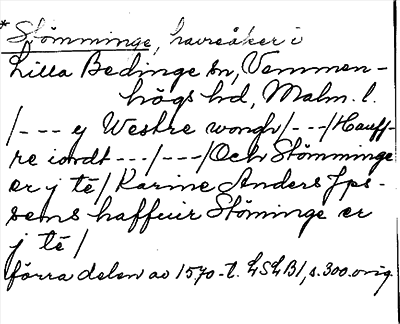 *Stömminge, havreåker i
Lilla Bedinge sn, Vemmen-
högs hd, Malm. l.
/--- y Westre wongh/---/Hauff-
re iordt---/---/Och Stömminge
er j tē/Karine Anders Jps-
sens haffuir Stöminge er
j tē/
förra delen av 1570-t. LSLB1, s. 300. orig